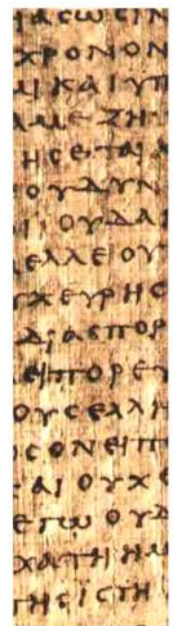 ΙΑϹΩϹΙΝ
ΧΡΟΝΟΝ
ΜΙΚΑΙΥΠ
ΑΜΕΖΗΤ
ΗϹΕΤΑΙ
ΟΥΔΥΝ
ΟΙΟΥΔΑΙ
ΕΛΛΕΙΟΥ
ΥΧΕΥΡΗϹ
ΔΙΑϹΠΟΡ
ΕΙΠΟΡΕΥ
ΟΥϹΕΛΛΗ
ΟϹΟΝΕΙΠ
ΑΙΟΥΧΕ
ΕΓΩΟΥΔ
ΧΑΤΗΗΜ
ΤΗϹΙϹΤΗ